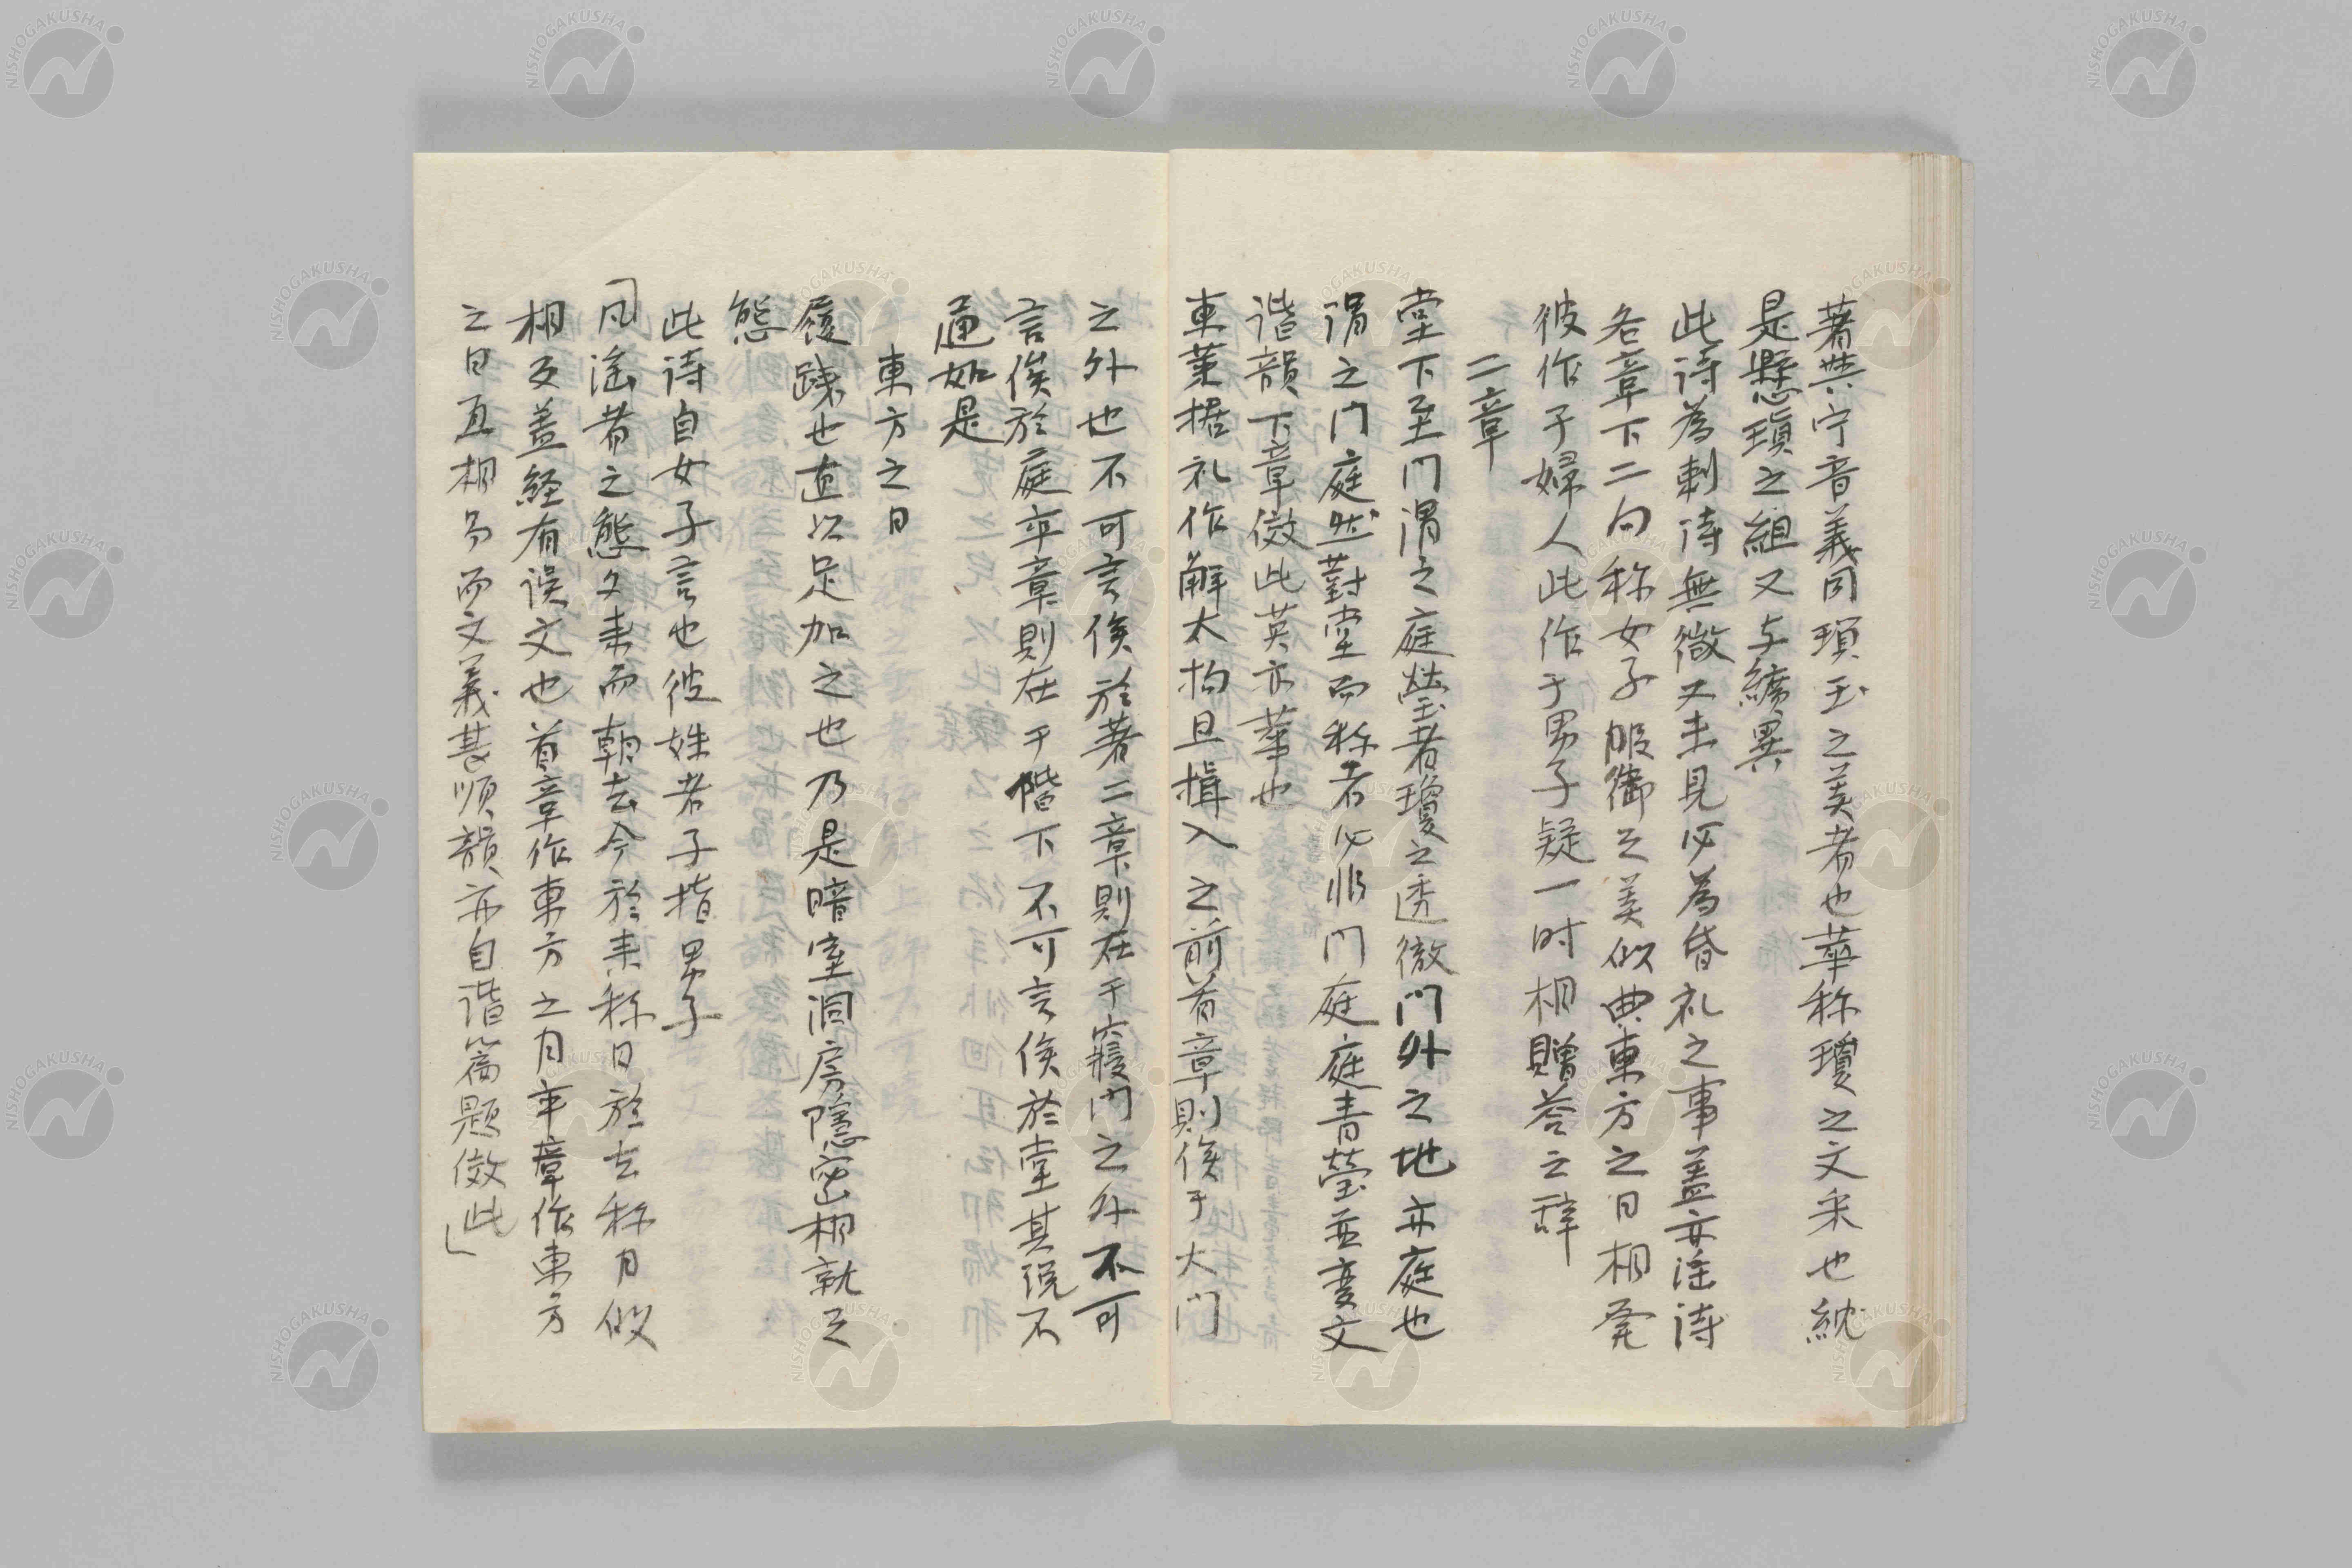 著與宁音義同瑱玉之美者也華称瓊之文采也紞
是懸瑱之組又与纊異
此詩為刺詩無徴又未見必為昏礼之事蓋亦淫詩
各章下二句称女子服御之美似与東方之日相発
彼作子婦人此作于男子疑一时相贈答之辞
二章
堂下至门謂之庭瑩者瓊之透徹門外之地亦庭也
謂之门庭然對堂而称者必非门庭庭青瑩並変文
谐韻下章倣此英亦華也
東莱据礼作解太拘且揖入之前首章則俟于大门
之外也不可言俟於著二章則在于寝门之外不可
言俟於庭卒章則在于階下不可言俟於堂其説不
通如是
東方之日
履踐也直以足加之也乃是暗室洞房隠密相就之
態
此詩自女子言也彼姝者子指男子
「凡淫者之態夕来而朝去今於来称日於去称月似
相反蓋経有误文也首章作東方之月卒章作東方
之日互相易而文義甚順韻亦自谐篇題倣此」
NISHOGAKUSHA